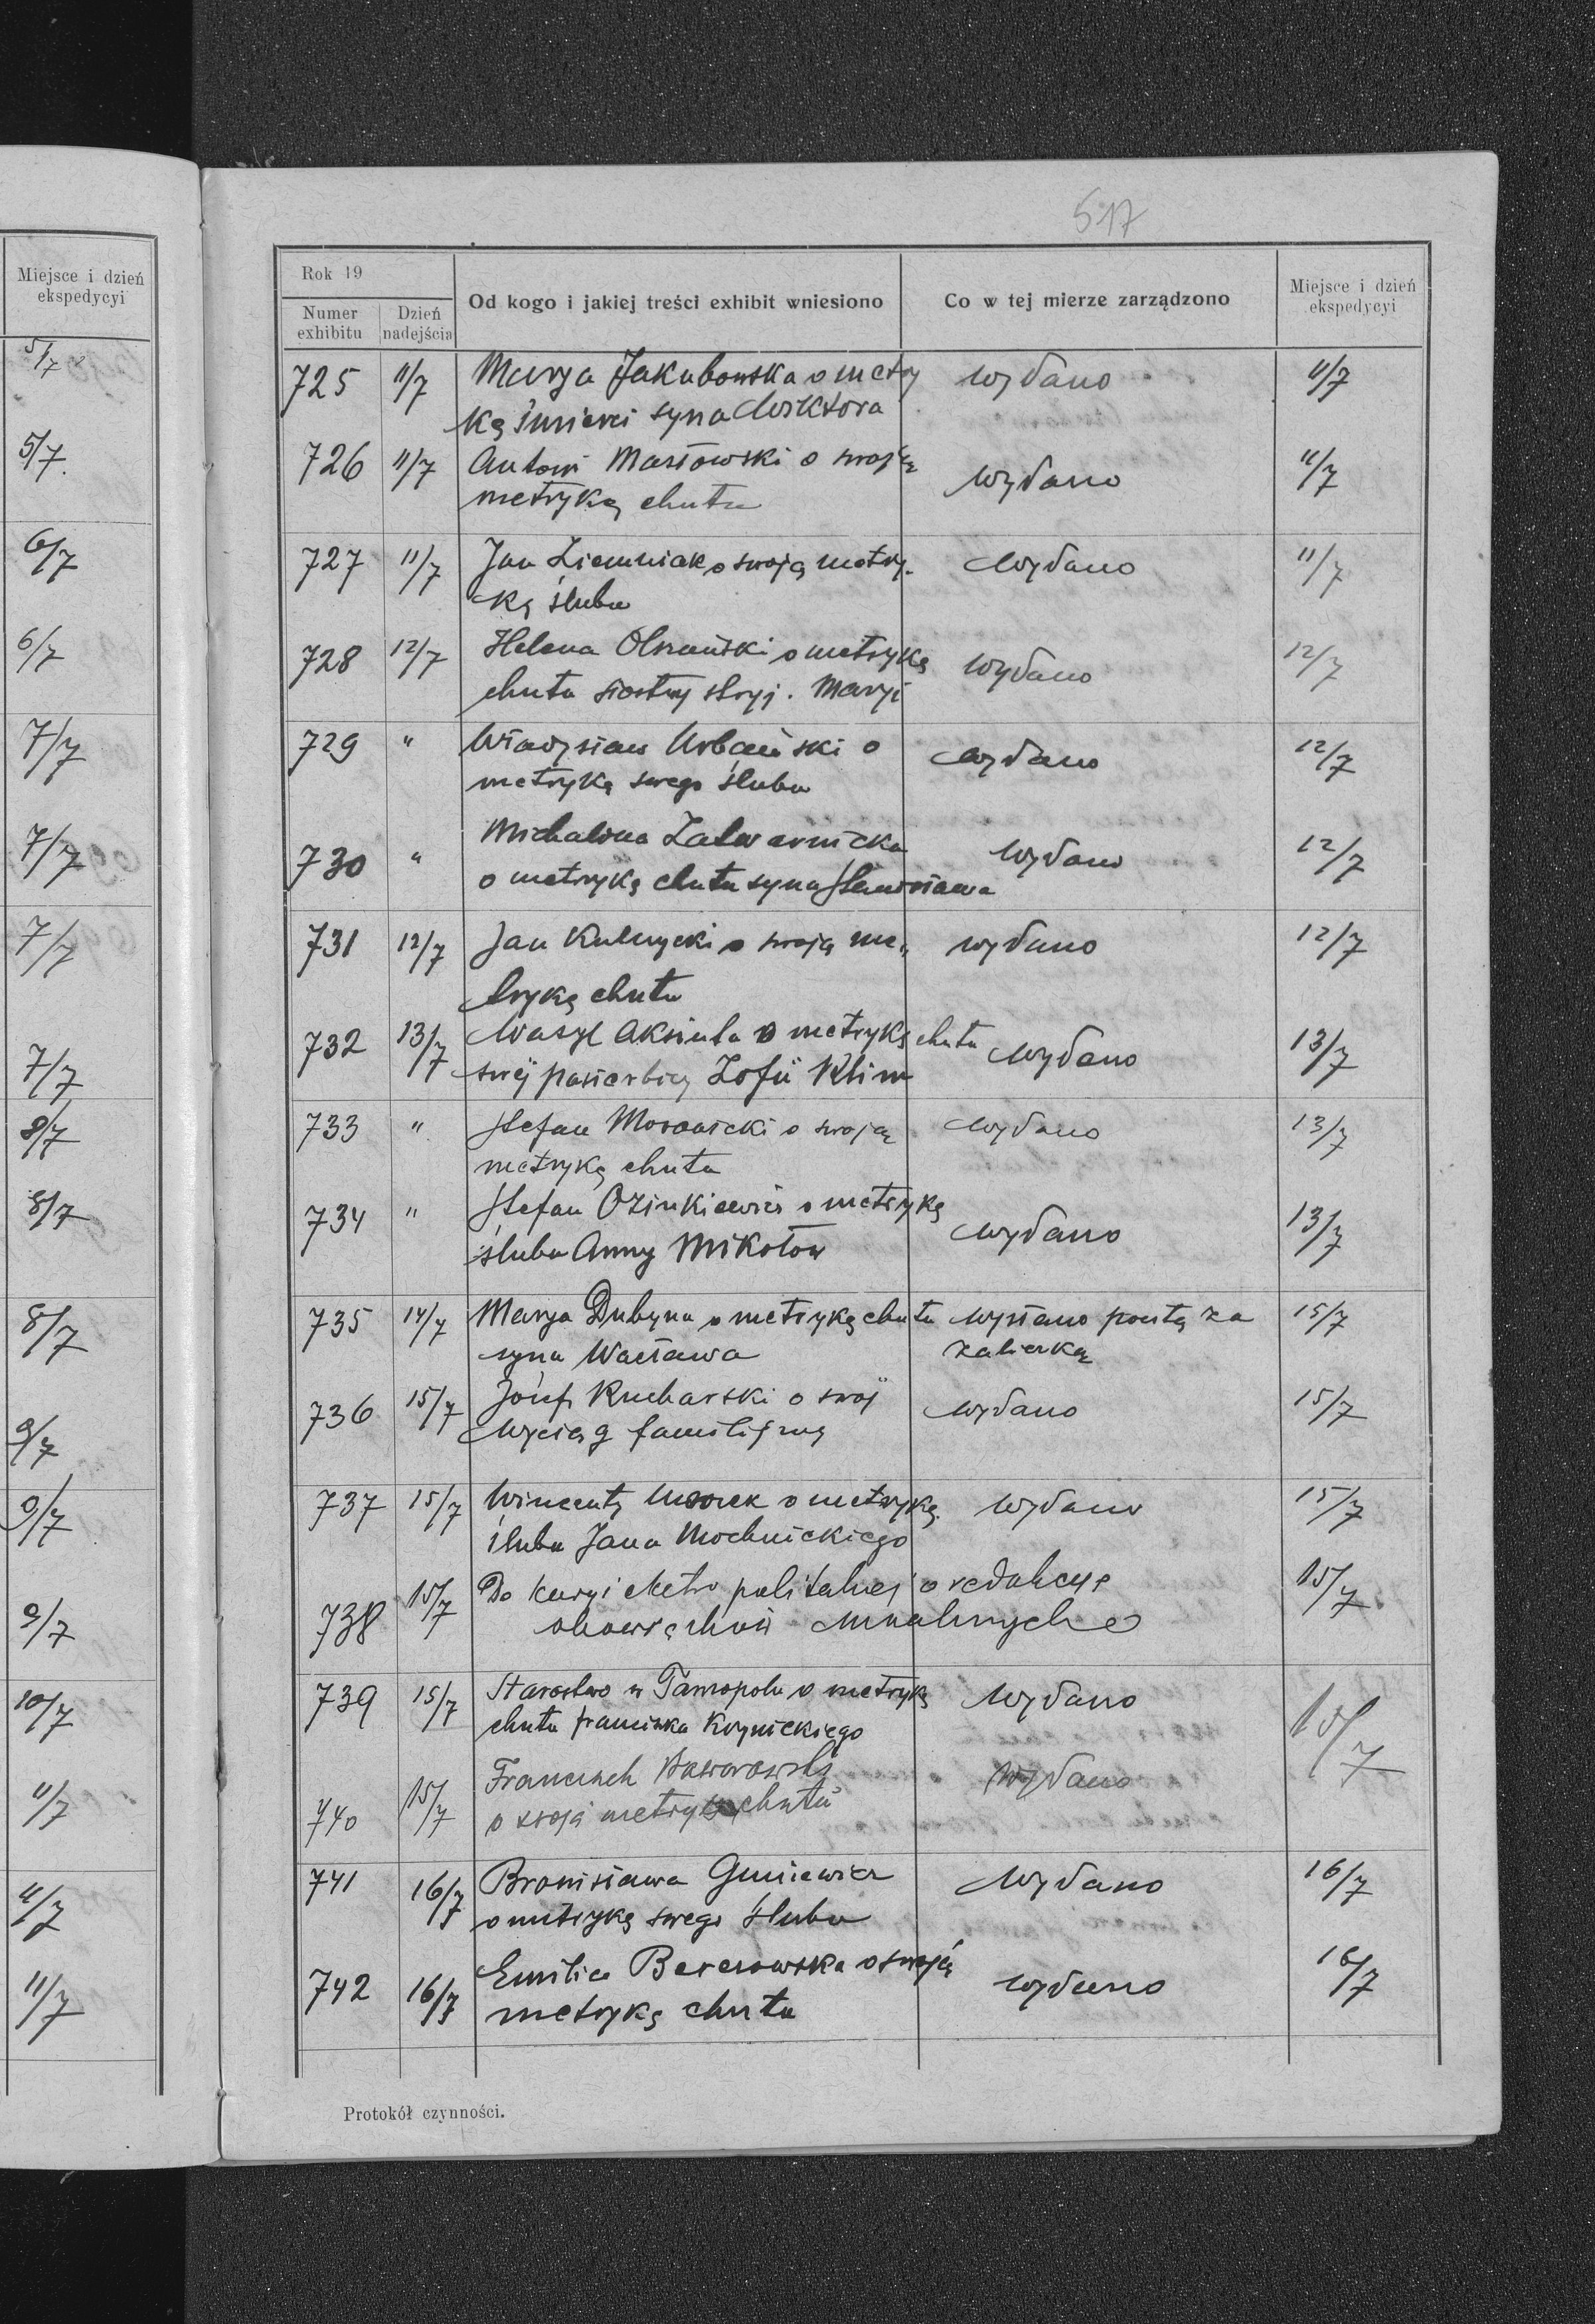 Miejsce i dzień
ekspedycyi
5/7
5/7.
6/7
6/7
7/7
7/7
7/7
7/7
8/7
8/7
8/7
9/7
9/7
9/7
10/7
11/7
11/7
11/7
517
Rok 19
Numer
exhibitu
Dzień
nadejścia
Od kogo i jakiej treści exhibit wniesiono
Co w tej mierze zarządzono
Miejsce i dzień
ekspedycyi
725 11/7 Marya Jakubowska o metry wydano 11/7
kę śmierci syna Wiktora
726 11/7 Antoni Masłowski o swoją wydano 11/7
metrykę chrztu
727 11/7 Jan Ziemniak o swoją metry- wydano 11/7
kę ślubu
728 12/7 Helena Olszański o metrykę wydano 12/7
chrztu siostry stryj. Maryi
729 " Władysław Urbański o wydano 12/7
metrykę swego ślubu
730 " Michalina Zalwarnicka wydano 12/7
o metrykę chrztu syna Stanisława
731 12/7 Jan Kulczycki o swoją me- wydano 12/7
trykę chrztu
732 13/7 Wasyl Aksiuta o metrykę chrztu wydano 13/7
swej pasierbicy Zofii Klim
733 " Stefan Morawicki o swoją wydano 13/7
metrykę chrztu
734 " Stefan Ozinkiewicz o metrykę wydano 13/7
ślubu Anny Mikołów
735 14/7 Marya Dubyna o metrykę chrztu wysłano pocztą za 15/7
syna Wacława zaliczką
736 15/7 Józef Kucharski o swój wydano 15/7
wyciąg familijny
737 15/7 Wincenty o metrykę wydano 15/7
ślubu Jana Mochnickiego
738 15/7 Do Kuryi Metropolitalnej o 15/7
739 15/7 Starostwo w Tarnopolu o metrykę wydano 15/7
chrztu Franciszka Krynickiego
740 15/7 Franciszek Baworowski wydano
o swoją metrykę chrztu
741 16/7 Bronisława Gmiewicz wydano 16/7
o metrykę swego ślubu
742 16/7 Emilia Berezowska o swoją wydano 16/7
metrykę chrztu
Protokół czynności.